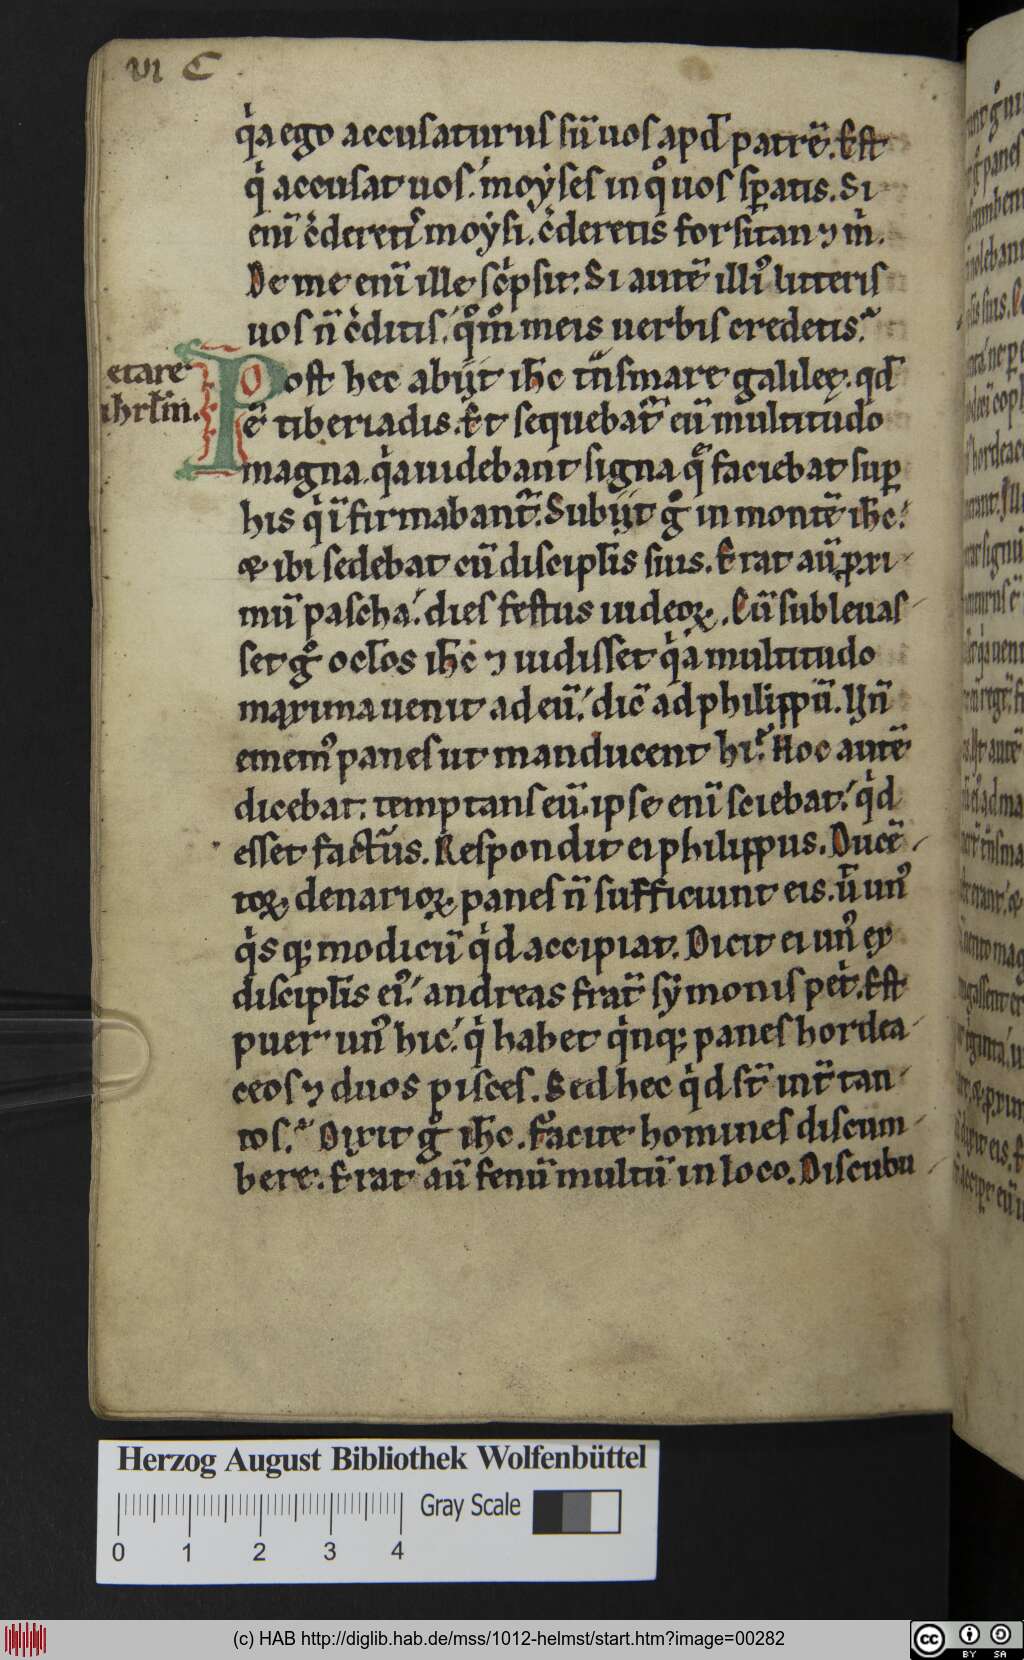 VI C
q̇a ego accusaturus sū uos apd̄ patrē. Est
q̇ accusat uos. moẏses in qͦ uos sꝑatis. Si
enī c̓deretis̄ moẏsi. c̓deretis forsitan ⁊ m̓.
De me enī ille sc̓psit. Si autē illiꝰ litteris
uos n̄ c̓ditis. qͦmͦ meis uerbis credetis.
etare
ihrl̄m.
Post hec abiit ih̄c tn̄smare galileę. qd̄
ē tiberiadis. Et sequebat̄ eū multitudo
magna. q̇a uidebant signa q̄ faciebat suꝑ
his q̇ ī firmabant̄. Subiit gͦ in montē ih̄c.
& ibi sedebat cū discipl̄is suis. Erat aū ꝓxi
mū pascha. dies festus iudeoꝝ. Cū subleuas
set gͦ ocl̄os ih̄c ⁊ uidisset q̇a multitudo
maxima uenit ad eū. dic̄ ad philippū. Vn̄
ememꝰ panes ut manducent hi. Hoc autē
dicebat. temptans eū. ipse enī sciebat. q̇d
esset factūs. Respondit ei philippus. Ducē
toꝝ denarioꝝ panes n̄ sufficiunt eis. ut̄ unꝰ
q̇sqꝫ modicū q̇d accipiat. Dicit ei unꝰ ex
discipl̄is eiꝰ. andreas frat̄ sẏmonis pet̓. Est
puer unꝰ hic. q̇ habet q̇nqꝫ panes hordea
ceos ⁊ duos pisces. Sed hec q̇d st̄ int̄ tan
tos. Dixit gͦ ih̄c. Facite homines discum
bere. Erat aū fenū multū in loco. Discubu
Herzog August Bibliothek Wolfenbüttel
Gray Scale
0 1 2 3 4
(c) HAB http://diglib.hab.de/mss/1012-helmst/start.htm?image=00282
cc BY SA